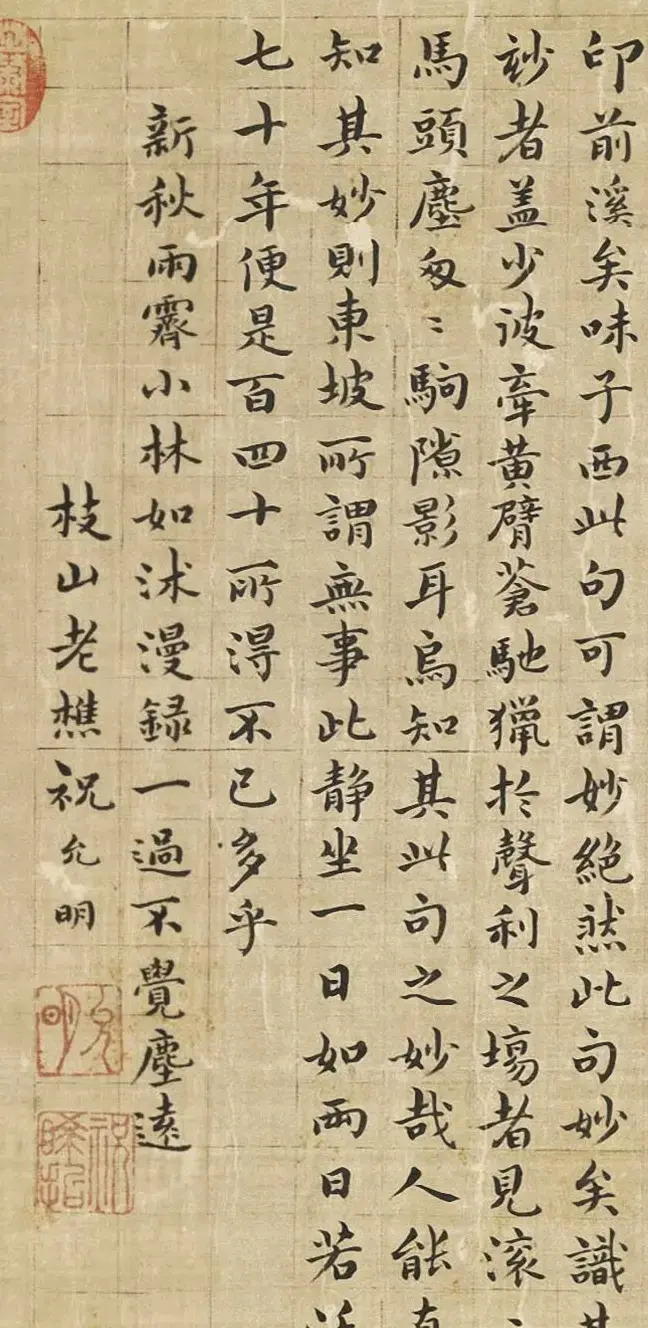 印前溪矣味子西此句可謂妙絕然此句妙矣識其
玅者盖少彼牽黃臂蒼馳獵於聲利之場者見滾
馬頭塵匆〻駒隙影耳烏知其此句之妙哉人能真
知其妙則東坡所謂無事此静坐一日如兩日若
七十年便是百四十所得不已多乎
新秋雨霽小林如沭漫録一過不覺塵遠
枝山老樵祝允明
允明